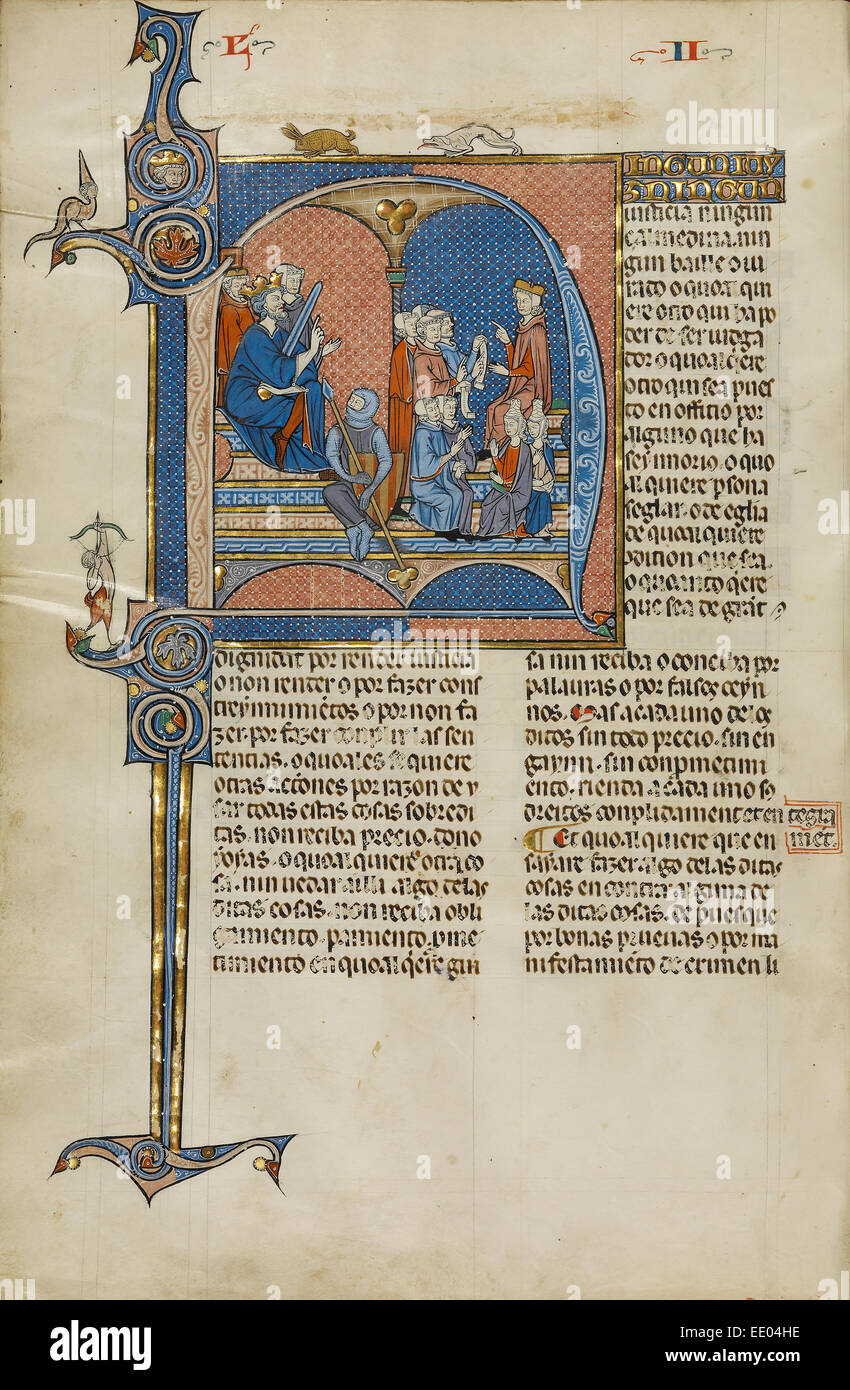 L II
INGUN IUY
Z NINGUN
iusticia ningun
çalmedina. nin
gun bayle o iu
rado o quoal quie
ere otro qui ha po
der de ser iudga
dor o quoal q̃ere
otro qui sea pues
to en officio por
alguno que ha
seynnorio. o quo
al quiere ꝑsona
seglar. o de eglia
de quoal quiere
dition que sea.
o quanto q̃ere
que sea de grãt
dignidat por render iusticia
o non render o por fazer cons
treynnimiẽtos o por non fa
zer. por fazer las sen
tencias. o quoales se quiere
otras acciones por razon de y
sar todas estas cosas sobredi
tas. non reciba precio. dono
o quoal quiere otra co
sa. nin uedar ailli algo delas
ditas cosas. non reciba obli
gamiento. pamiento. ꝓme
timiento en quoal q̃ere gui
sa nin reciba o conciba por
palauras o por falsos ceyn
nos. Mas a cada uno delos
ditos sin todo precio. sin en
gaynn. sin conpmetimi
ento. rienda a cada uno so
dreitos conplidament et en tegra
mẽt.
Et quoal quiere que en
sayare fazer algo delas ditas
cosas en contra alguna de
las ditas cosas. depues que
por bonas prueuas o por ma
nifestamiẽto de crimen li
alamy
Image ID: EE04HE
www.alamy.com